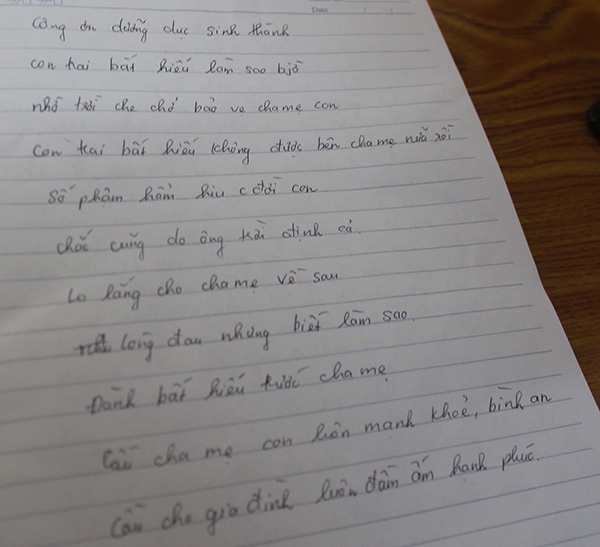 công ơn dưỡng dục sinh thành
con trai bất hiếu làm sao bjờ
nhờ trời che chở bảo vệ cha mẹ con
con trai bất hiếu không được bên cha mẹ nữa rồi
số phậm hẩm hiu c đời con
chắc cũng do ông trời định cả
lo lắng cho cha mẹ về sau
lòng đau nhưng biết làm sao
Đành bất hiếu trước cha mẹ
Cầu cha mẹ con luôn mạnh khoẻ, bình an
Cầu cho gia đình luôn đầm ấm hạnh phúc.